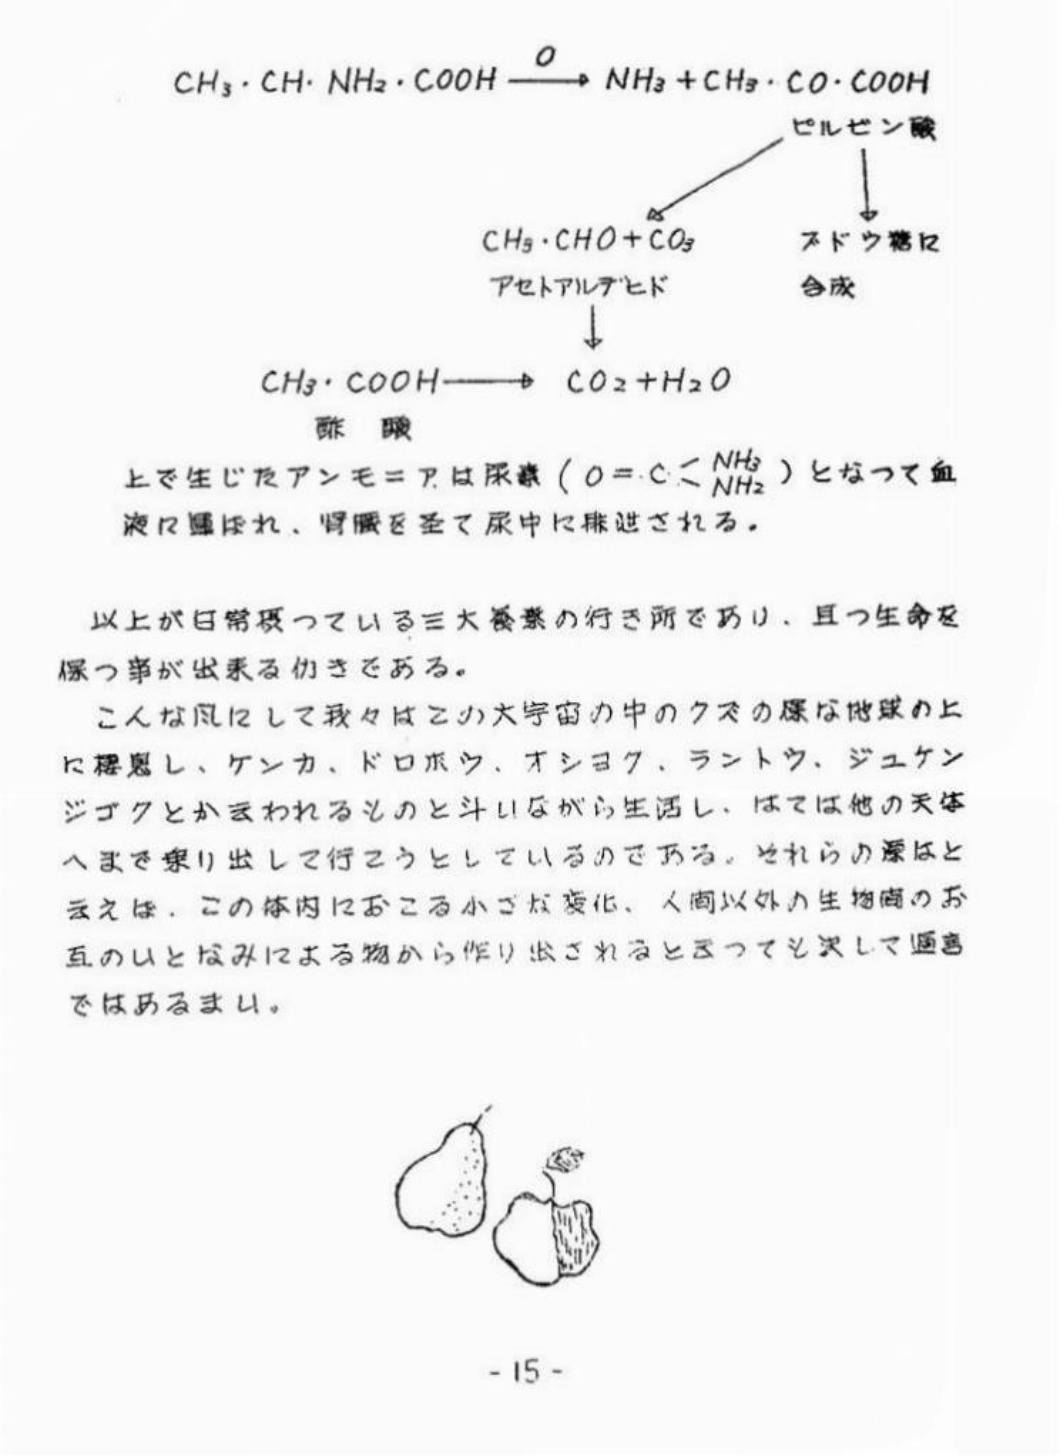 O
CH₃・CH・NH₂・COOH → NH₃+CH₃・CO・COOH
ピルビン酸
CH₃・CHO+CO₃ ブドウ糖に
アセトアルデヒド 合成
CH₃・COOH → CO₂+H₂O
酢 酸
上で生じたアンモニアは尿素(O=C<NH₃ NH₂)となつて血
液に運ばれ、腎臓を圣て尿中に排泄される。
以上が日常摂つている三大養素の行き所であり、且つ生命を
保つ事が出来る仂きである。
こんな風にして我々はこの大宇宙の中のクズの様な地球の上
に棲息し、ケンカ、ドロボウ、オショク、ラントウ、ジュケン
ジゴクとか云われるものと斗いながら生活し、はては他の天体
へまで乗り出して行こうとしているのである。それらの源はと
云えば、この体内におこる小さな変化、人間以外の生物間のお
互のいとなみによる物から作り出されると云つても決して過言
ではあるまい。
-15-